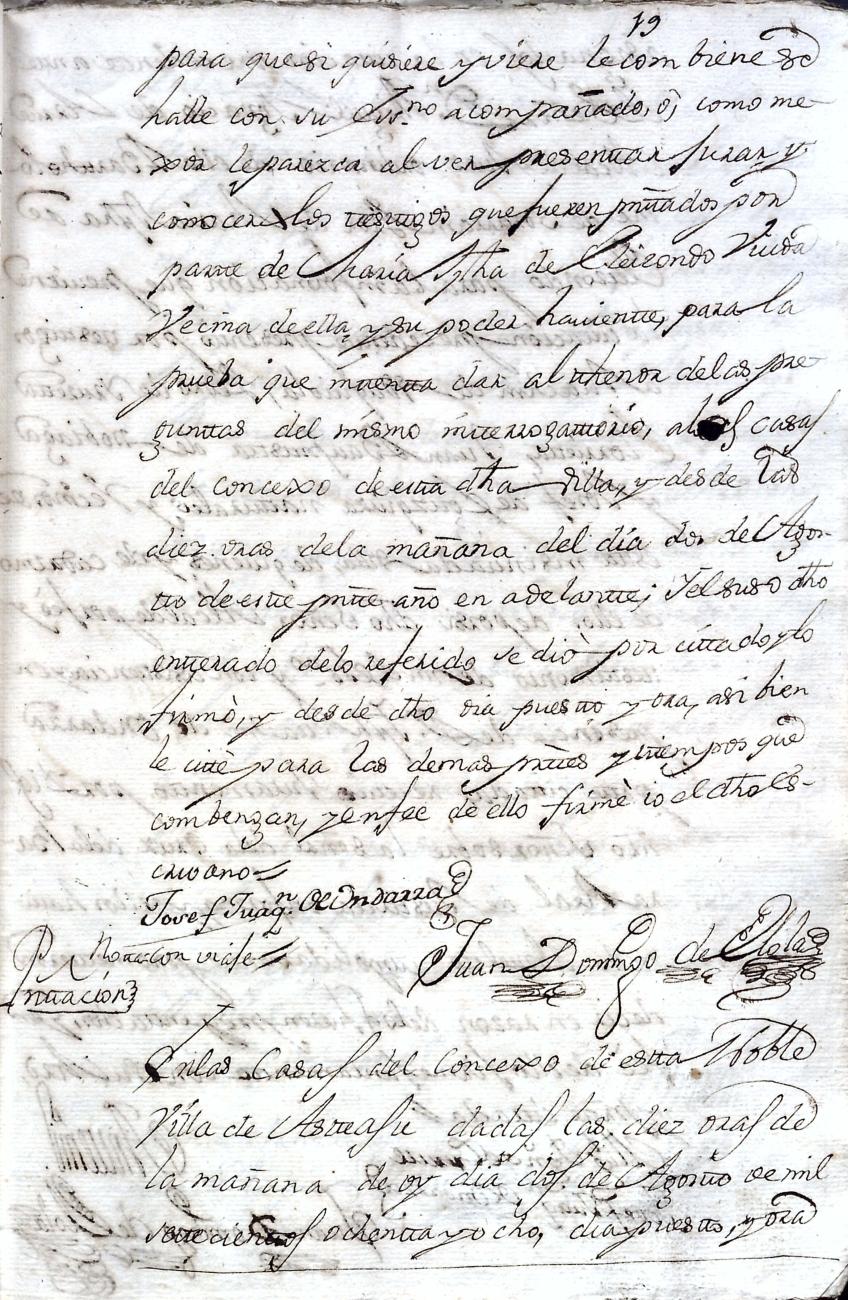 19
para que si quisiere y viere le combiene se
halle con su Ess.no acompañado, ô, como me-
xor le parezca al ver presenttar jurar y
conocer los testtigos que fueren pnttados por
partte de María Jpha de Elizondo Viuda
Vecina de ella, y su poder haviente, para la
prueba que intenta dar al thenor de las pre-
gunttas del mismo interrogattorio, a las casas
del concexo de estta dha Villa, y desde las
diez oras de la mañana del día dos de Agos-
tto de este pntte año en adelantte; Y el suso dho
entterado delo referido se diò por cittado y lo
firmò, y desde dho día puestto y ora, asi bien
le citté para las demas prttes y ttiempos que
combengan, y en fee de ello firmè io el dho es-
crivano
Josef Juaq.n de Ondarra
Notta con viaje
Juan Domingo de Elola
Pnttación
En las Casas del Concexo de estta Noble
Villa de Astteasu dadas las diez oras de
la mañana de oy día dos de Agostto de mil
settecienttos ochentta y ocho, día puestto, y ora